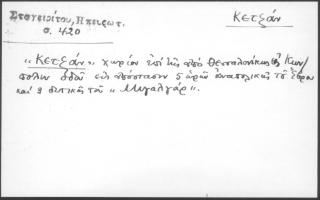 Σταγειρίτου, Ηπειρωτ.
σ. 420
Κετζάν
"Κετζάν", χωρίον ἐπὶ τῆς ἀπὸ Θεσσαλονίκης εἰς Κων/
πολιν ὁδοῦ εἰς ἀπόστασιν 5 ὡρῶν ἀνατολικῶς τοῦ Ἕβρου
καὶ 9 δυτικῶς τοῦ "Μιγαλγάρ".